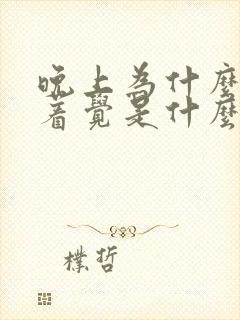 晚上為什麼
著覺是什麼
樸哲